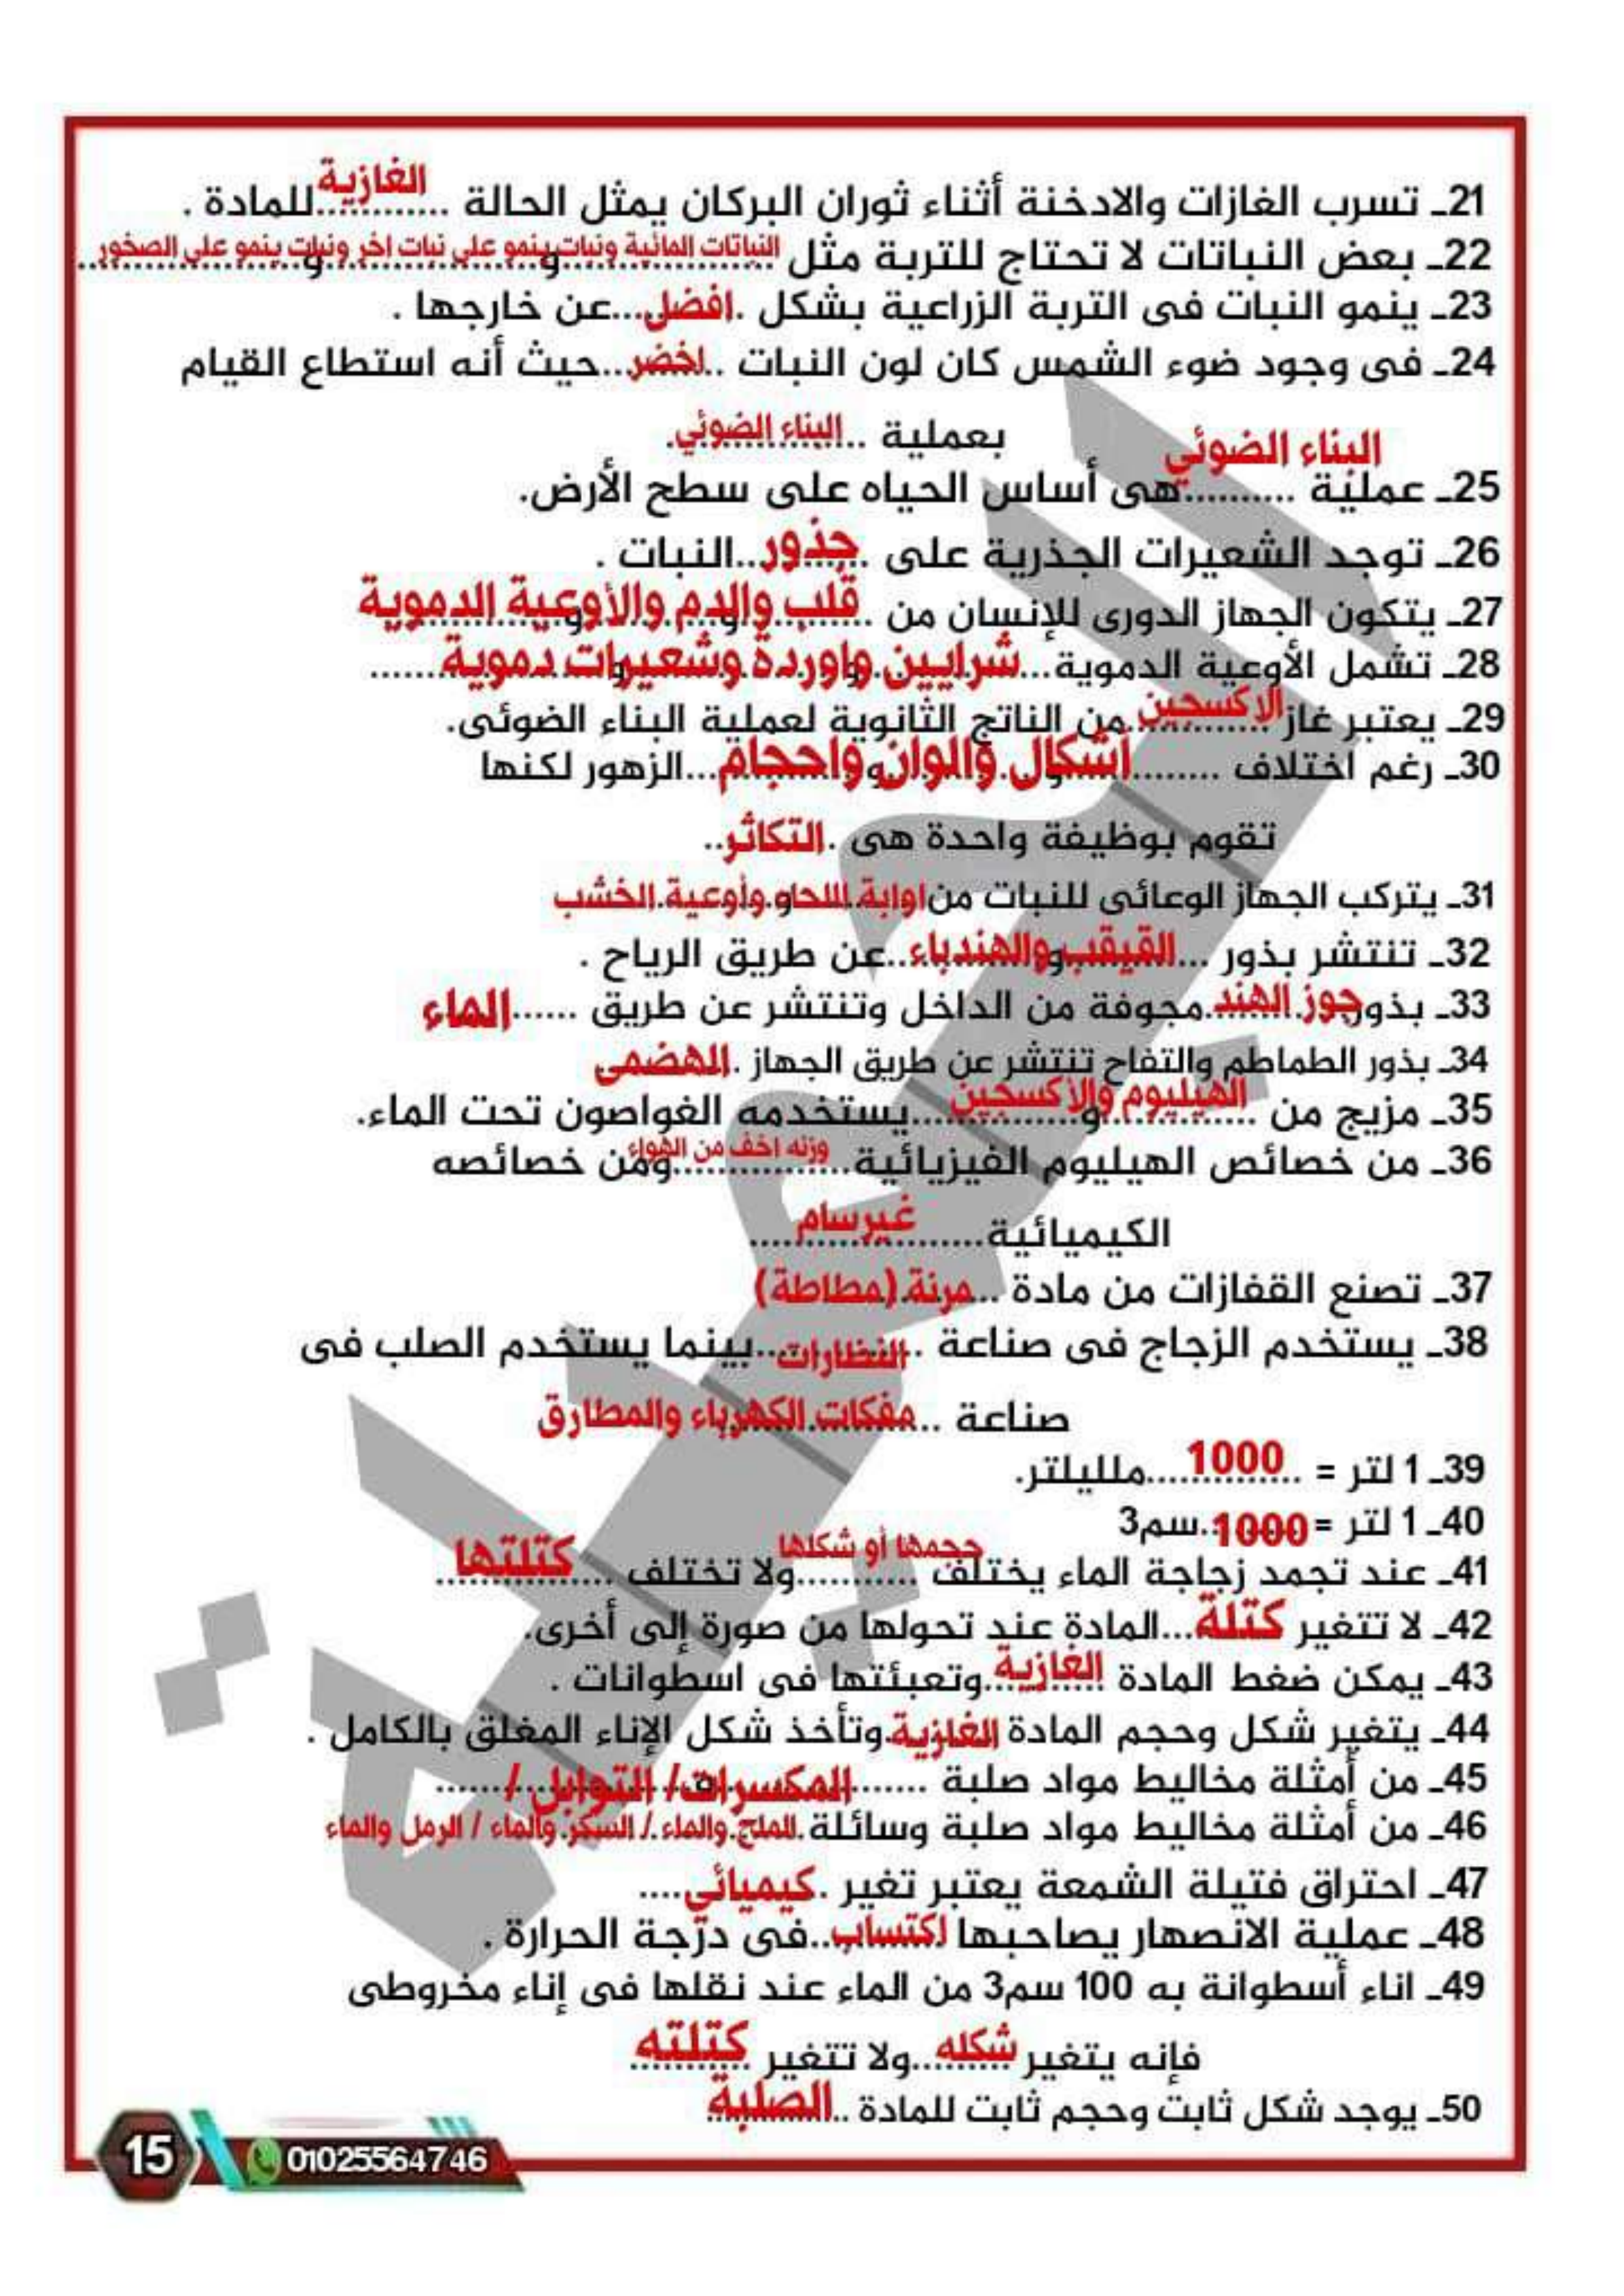 21ـ تسرب الغازات والادخنة أثناء ثوران البركان يمثل الحالة ............الغازية للمادة .
22ـ بعض النباتات لا تحتاج للتربة مثل النباتات المائية ونبات ينمو على نبات اخر ونبات ينمو على الصخور
23ـ ينمو النبات فى التربة الزراعية بشكل .افضل....عن خارجها .
24ـ فى وجود ضوء الشمس كان لون النبات ..اخضر...حيث أنه استطاع القيام
بعملية ..البناء الضوئي.
البناء الضوئي
25ـ عملية ..........هى أساس الحياه على سطح الأرض.
26ـ توجد الشعيرات الجذرية على .جذور..النبات .
27ـ يتكون الجهاز الدورى للإنسان من قلب والدم والأوعية الدموية
28ـ تشمل الأوعية الدموية...شرايين واوردة وشعيرات دموية......
29ـ يعتبر غاز الاكسجين من الناتج الثانوية لعملية البناء الضوئى.
30ـ رغم اختلاف ......أشكال والوان واحجام...الزهور لكنها
تقوم بوظيفة واحدة هى .التكاثر..
31ـ يتركب الجهاز الوعائى للنبات من اوابة اللحاو وأوعية الخشب
32ـ تنتشر بذور ...القيقب والهندباء..عن طريق الرياح .
33ـ بذور جوز الهند مجوفة من الداخل وتنتشر عن طريق ......الماء
34ـ بذور الطماطم والتفاح تنتشر عن طريق الجهاز .الهضمى
35ـ مزيج من الهيليوم والأكسجين يستخدمه الغواصون تحت الماء.
36ـ من خصائص الهيليوم الفيزيائية وزنه اخف من الهواء ومن خصائصه
الكيميائية غيرسام
37ـ تصنع القفازات من مادة ...مرنة (مطاطة)
38ـ يستخدم الزجاج فى صناعة النظارات بينما يستخدم الصلب فى
صناعة ..مفكات الكهرباء والمطارق
39ـ 1 لتر = 1000 ملليلتر.
40ـ 1 لتر = 1000 سم3
41ـ عند تجمد زجاجة الماء يختلف حجمها أو شكلها ولا تختلف كتلتها
42ـ لا تتغير كتلة...المادة عند تحولها من صورة إلى أخرى.
43ـ يمكن ضغط المادة الغازية وتعبئتها فى اسطوانات .
44ـ يتغير شكل وحجم المادة الغازية وتأخذ شكل الإناء المغلق بالكامل .
45ـ من أمثلة مخاليط مواد صلبة ......المكسرات/ التوابل /......
46ـ من أمثلة مخاليط مواد صلبة وسائلة الملح والماء / السكر والماء / الرمل والماء
47ـ احتراق فتيلة الشمعة يعتبر تغير .كيميائي....
48ـ عملية الانصهار يصاحبها اكتساب..فى درجة الحرارة .
49ـ اناء أسطوانة به 100 سم3 من الماء عند نقلها فى إناء مخروطى
فإنه يتغير شكله..ولا تتغير كتلته
50ـ يوجد شكل ثابت وحجم ثابت للمادة ..الصلبة
15 01025564746